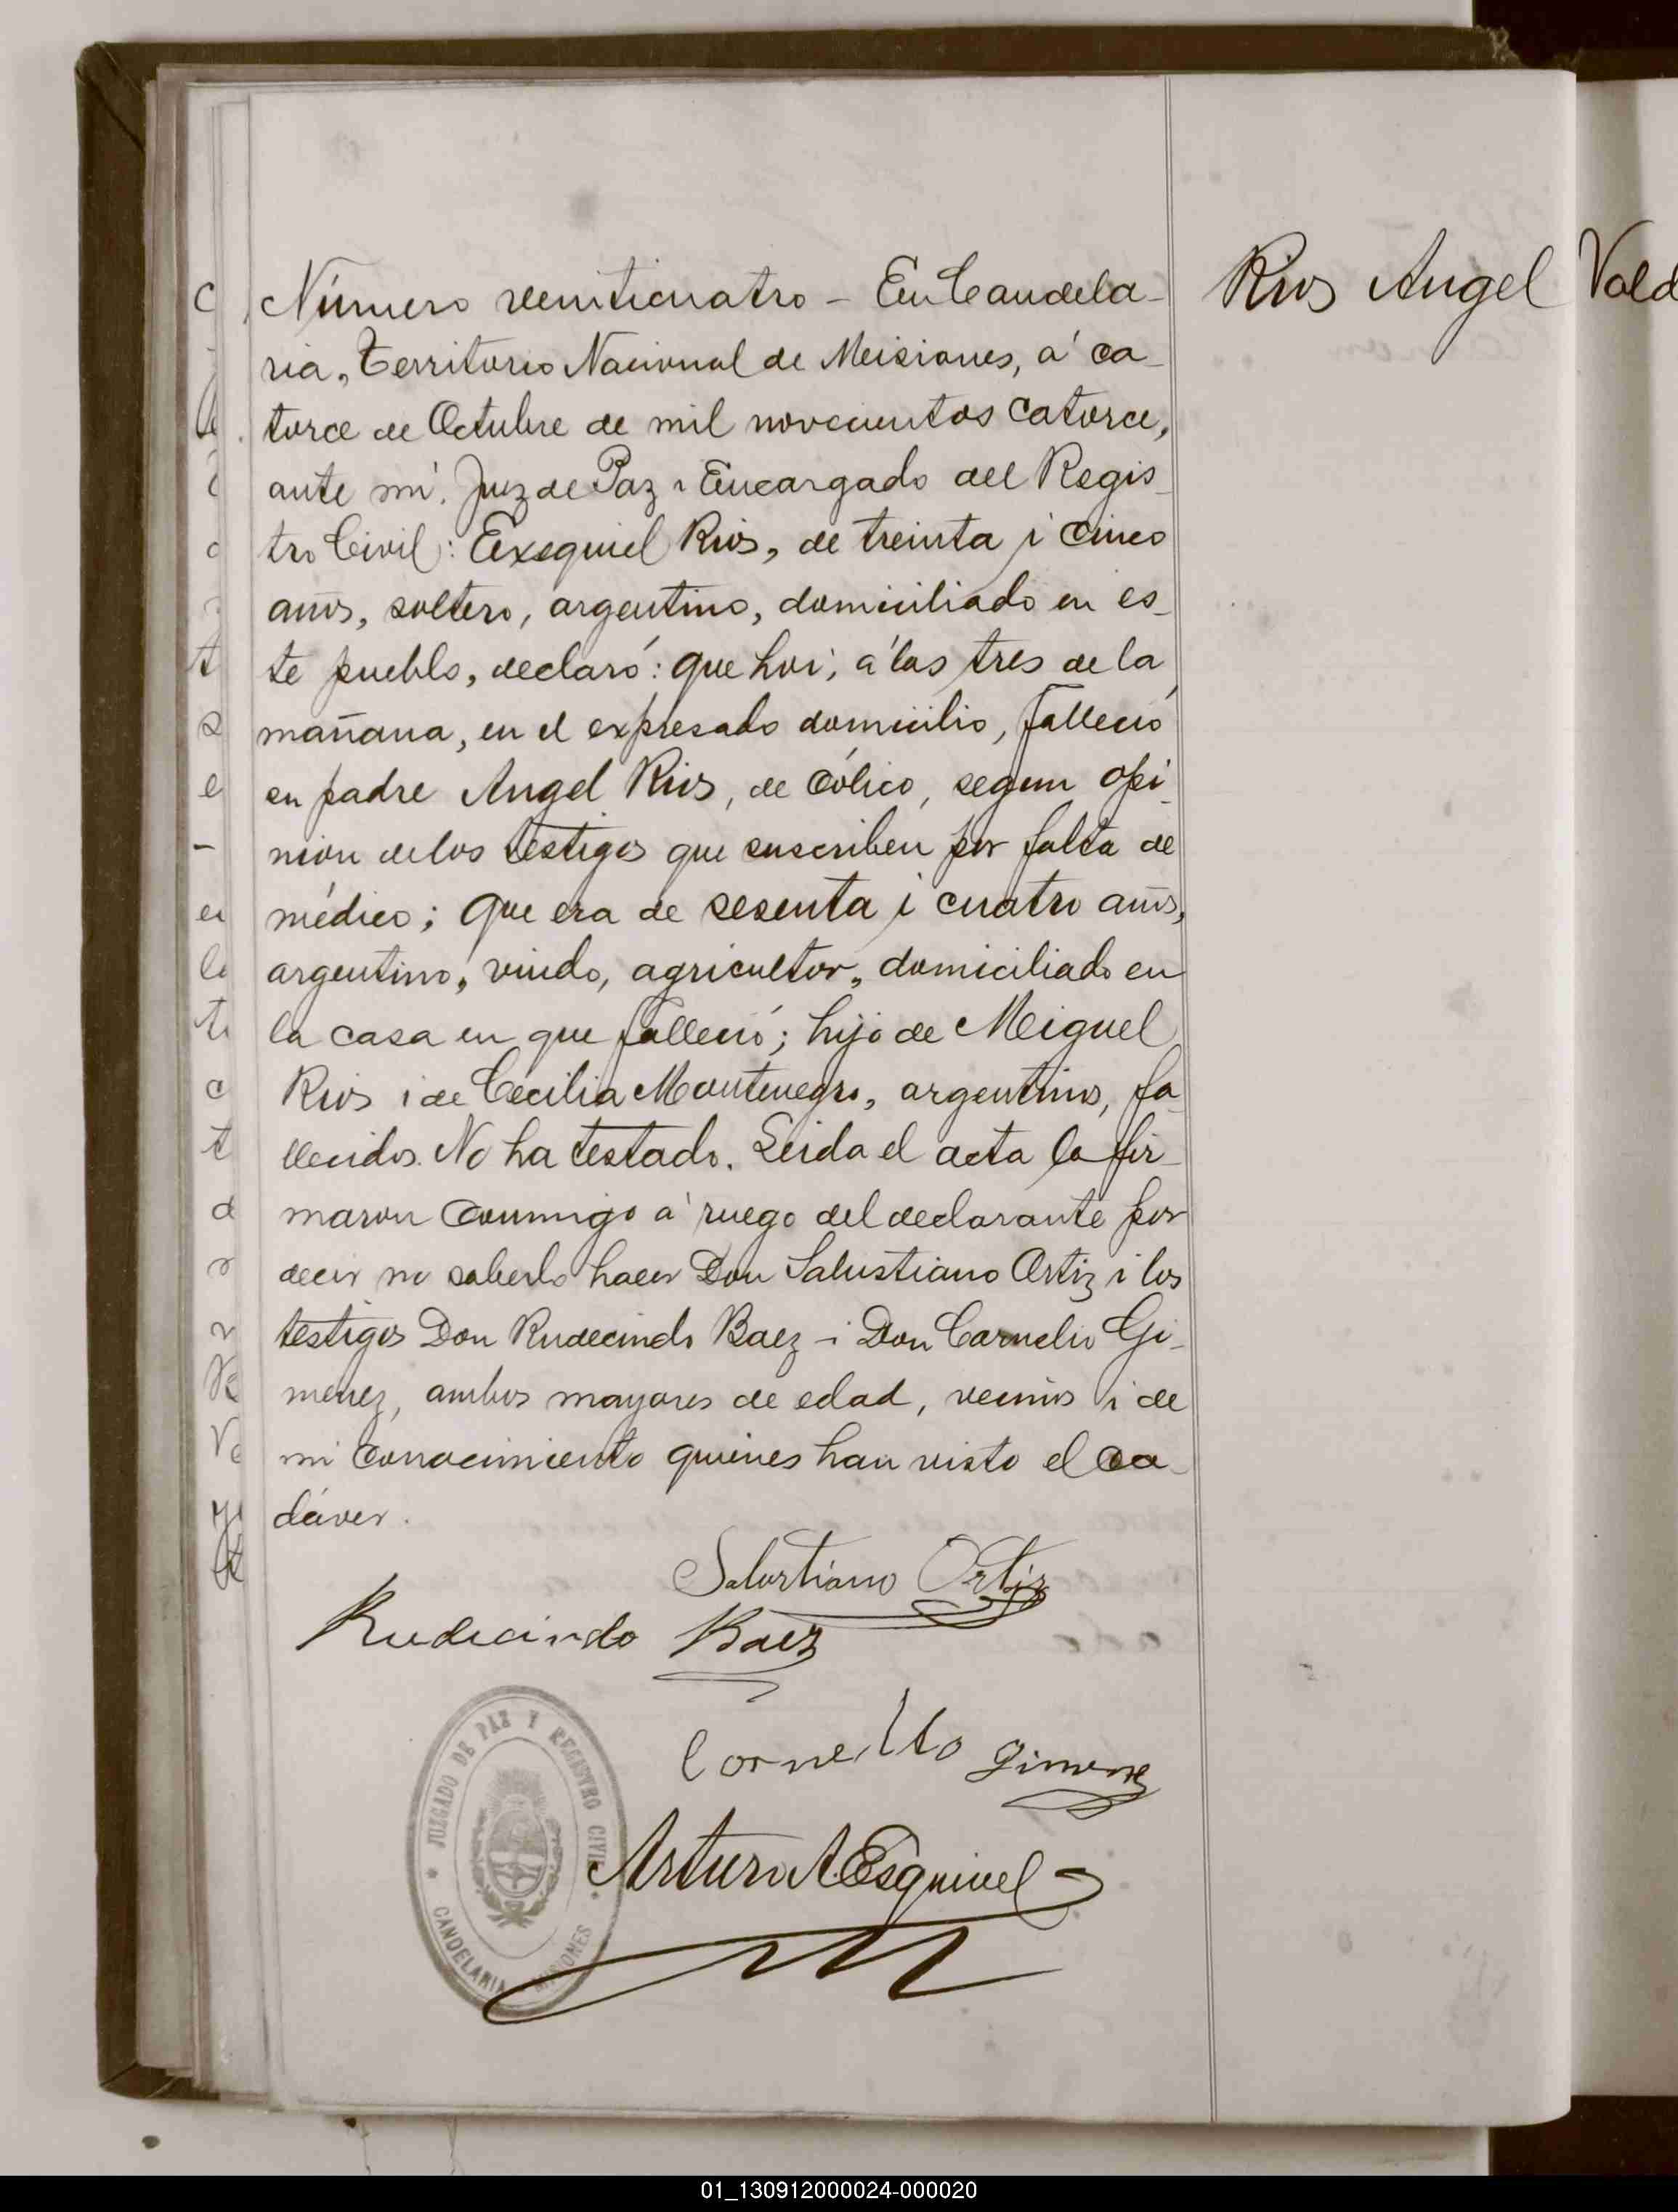 Rios Angel
Vald
Número veinticuatro - En Candela-
ria, Territorio Nacional de Misiones, á ca-
torce de Octubre de mil novecientos catorce,
ante mí, Juez de Paz i Encargado del Regis-
tro Civil: Exequiel Rios, de treinta i cinco
años, soltero, argentino, domiciliado en es-
te pueblo, declaró: que hoi, á las tres de la
mañana, en el expresado domicilio, falleció
su padre Angel Rios, de cólico, segun opi-
nion de los testigos que suscriben por falta de
médico; que era de sesenta i cuatro años,
argentino, viudo, agricultor, domiciliado en
la casa en que falleció; hijo de Miguel
Rios i de Cecilia Montenegro, argentinos, fa-
llecidos. No ha testado. Leida el acta la fir-
maron conmigo á ruego del declarante por
decir no saberlo hacer Don Salustiano Ortiz i los
testigos Don Rudecindo Baez - i Don Cornelio Gi-
menez, ambos mayores de edad, vecinos i de
mi conocimiento quienes han visto el ca-
dáver.
Salustiano Ortiz
Rudecindo Baez
Cornelio Gimenez
Arturo A. Esquivel
JUZGADO DE PAZ Y REGISTRO CIVIL
CANDELARIA MISIONES
01_130912000024-000020